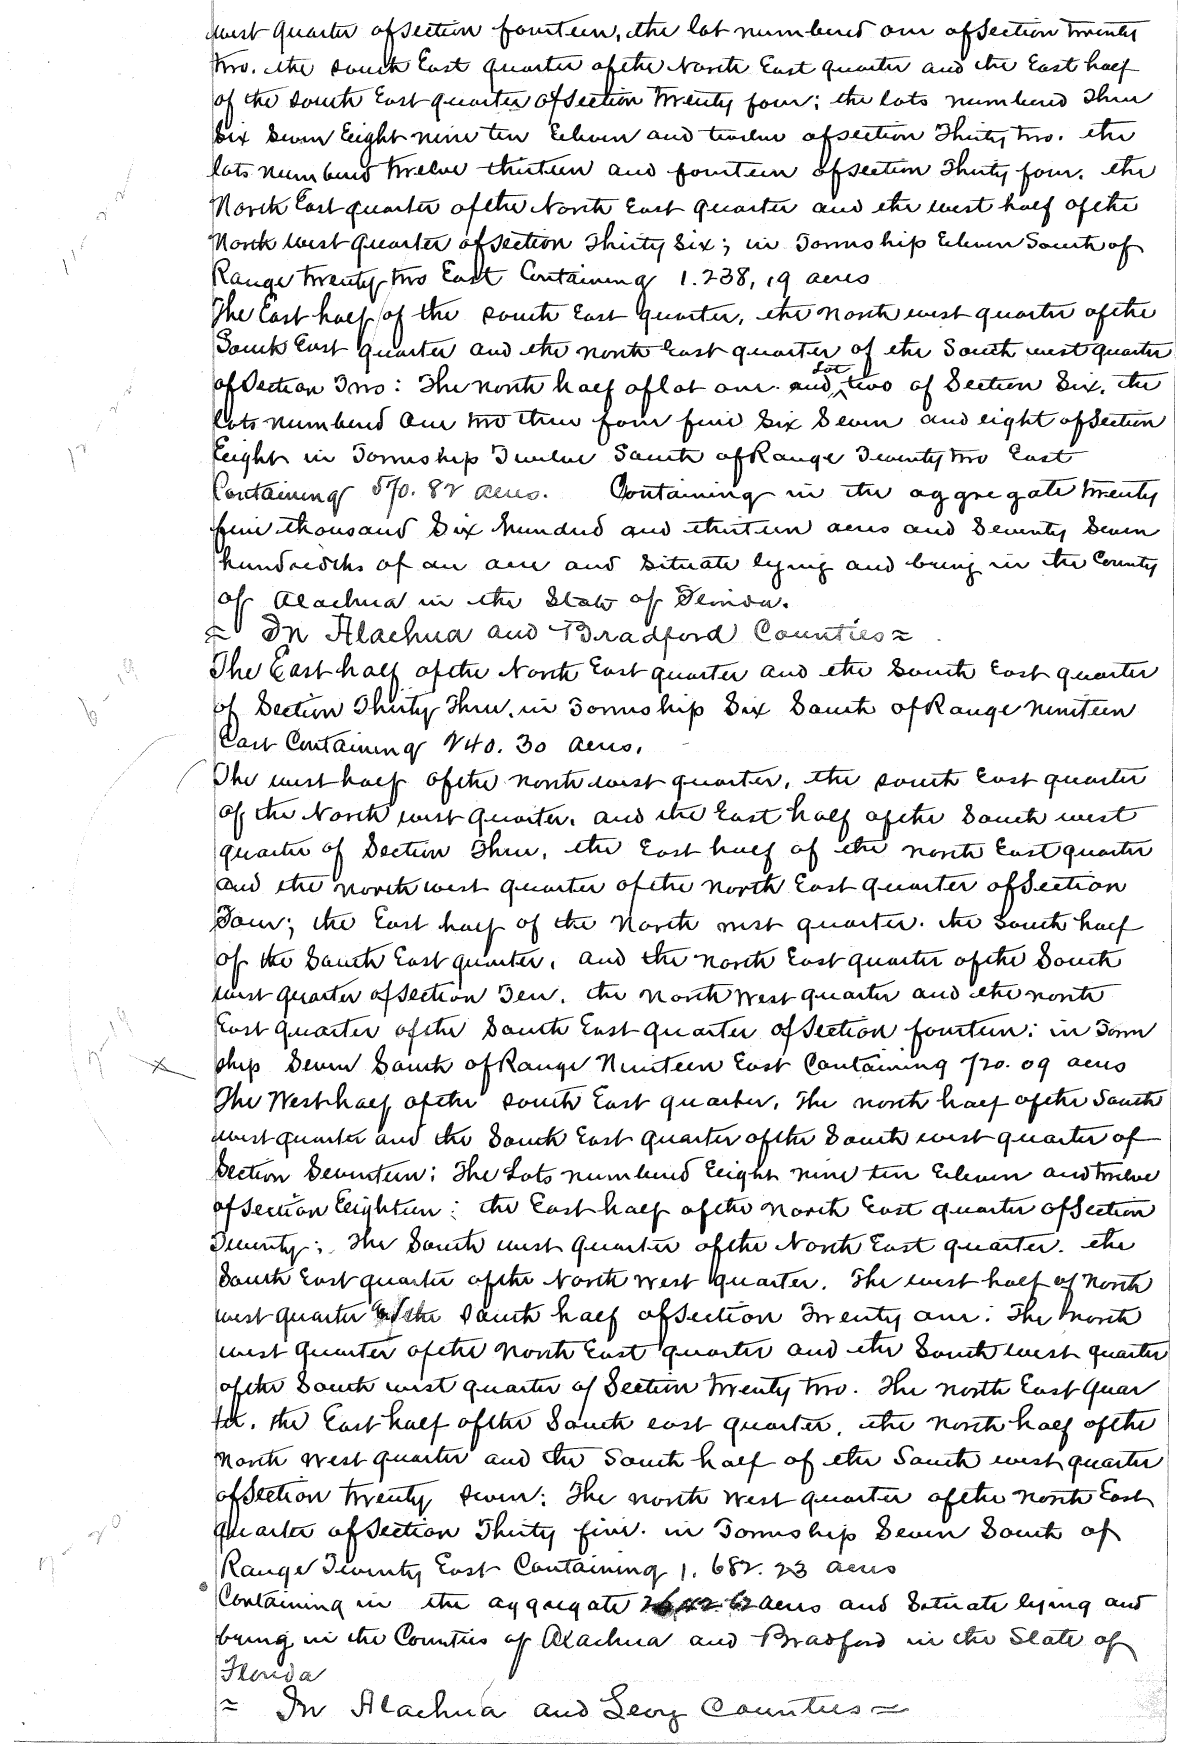 west quarter of Section fourteen, the lot numbered one of Section twenty
two. the South East quarter of the North East quarter and the East half
of the South East quarter of Section Twenty four; the lots numbered Three
Six Seven Eight nine ten Eleven and twelve of Section Thirty two. the
lots numbered twelve thirteen and fourteen of Section Thirty four. the
North East quarter of the North East quarter and the west half of the
North west quarter of Section Thirty Six; in Township Eleven South of
11-22
Range twenty two East Containing 1.238,19 acres
The East half of the South East quarter, the North west quarter of the
South East quarter and the North East quarter of the South west quarter
of Section Two: The North half of lot one and Lot two of Section Six, the
lots numbered One two three four five Six Seven and eight of Section
12-22
Eight in Township Twelve South of Range Twenty two East
Containing 570.82 acres. Containing in the aggregate twenty
five thousand Six hundred and thirteen acres and Seventy Seven
hundredths of an acre and Situate lying and being in the County
of Alachua in the State of Florida.
= In Alachua and Bradford Counties =
The East half of the North East quarter and the South East quarter
of Section Thirty Three, in Township Six South of Range Nineteen
6-19
East Containing 240.30 acres.
The west half of the North west quarter, the South East quarter
of the North west quarter, and the East half of the South west
quarter of Section Three, the East half of the North East quarter
and the North west quarter of the North East quarter of Section
Four; the East half of the North west quarter. the South half
of the South East quarter, and the North East quarter of the South
west quarter of Section Ten. the North West quarter and the North
East quarter of the South East quarter of Section fourteen: in Town
7-19
ship Seven South of Range Nineteen East Containing 720.09 acres
The West half of the South East quarter, The North half of the South
west quarter and the South East quarter of the South west quarter of
Section Seventeen: The Lots numbered Eight nine ten Eleven and twelve
of Section Eighteen: the East half of the North East quarter of Section
Twenty; The South west quarter of the North East quarter. the
South East quarter of the North West quarter. The west half of North
west quarter the South half of Section Twenty one: The North
west quarter of the North East quarter and the South west quarter
of the South west quarter of Section Twenty two. The North East Quar
ter. the East half of the South east quarter, the North half of the
North West quarter and the South half of the South west quarter
of Section twenty Seven: The North West quarter of the North East
quarter of Section Thirty five. in Township Seven South of
7-20
Range Twenty East Containing 1.682.23 acres
Containing in the aggregate acres and Situate lying and
being in the Counties of Alachua and Bradford in the State of
Florida
= In Alachua and Levy Counties =